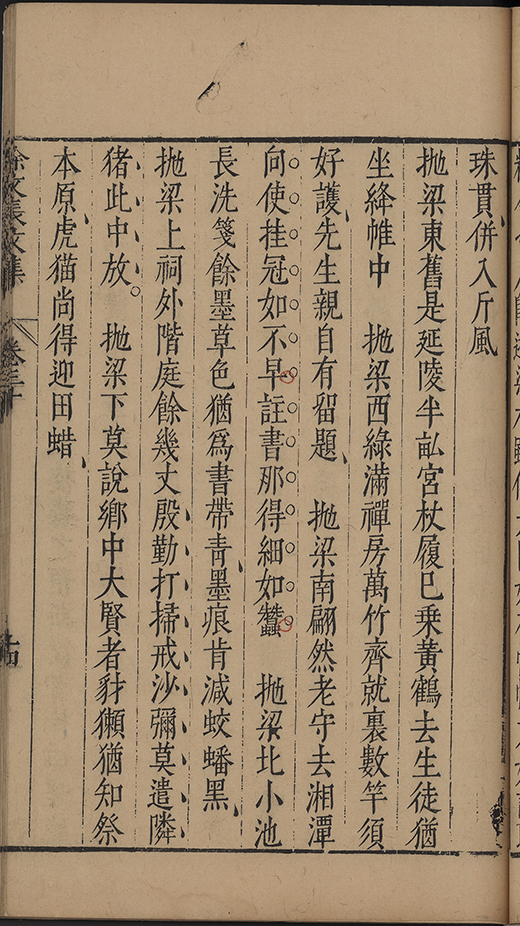 珠貫併入斤風
拋梁東舊是延陵半畝宮杖履已乗黃鶴去生徒猶
坐絳帷中　拋梁西綠滿禪房萬竹齊就裏數竿須
好護先生親自有留題　拋梁南翩然老守去湘潭
向使挂冠如不早註書那得細如蠶　拋梁北小池
長洗箋餘墨草色猶爲書帶青墨痕肯減蛟蟠黑
拋梁上祠外階庭餘幾丈殷勤打掃戒沙彌莫遣隣
猪此中放　拋梁下莫說鄉中大賢者豺獺猶知祭
本原虎猫尚得迎田蜡
徐文長文集　卷三十